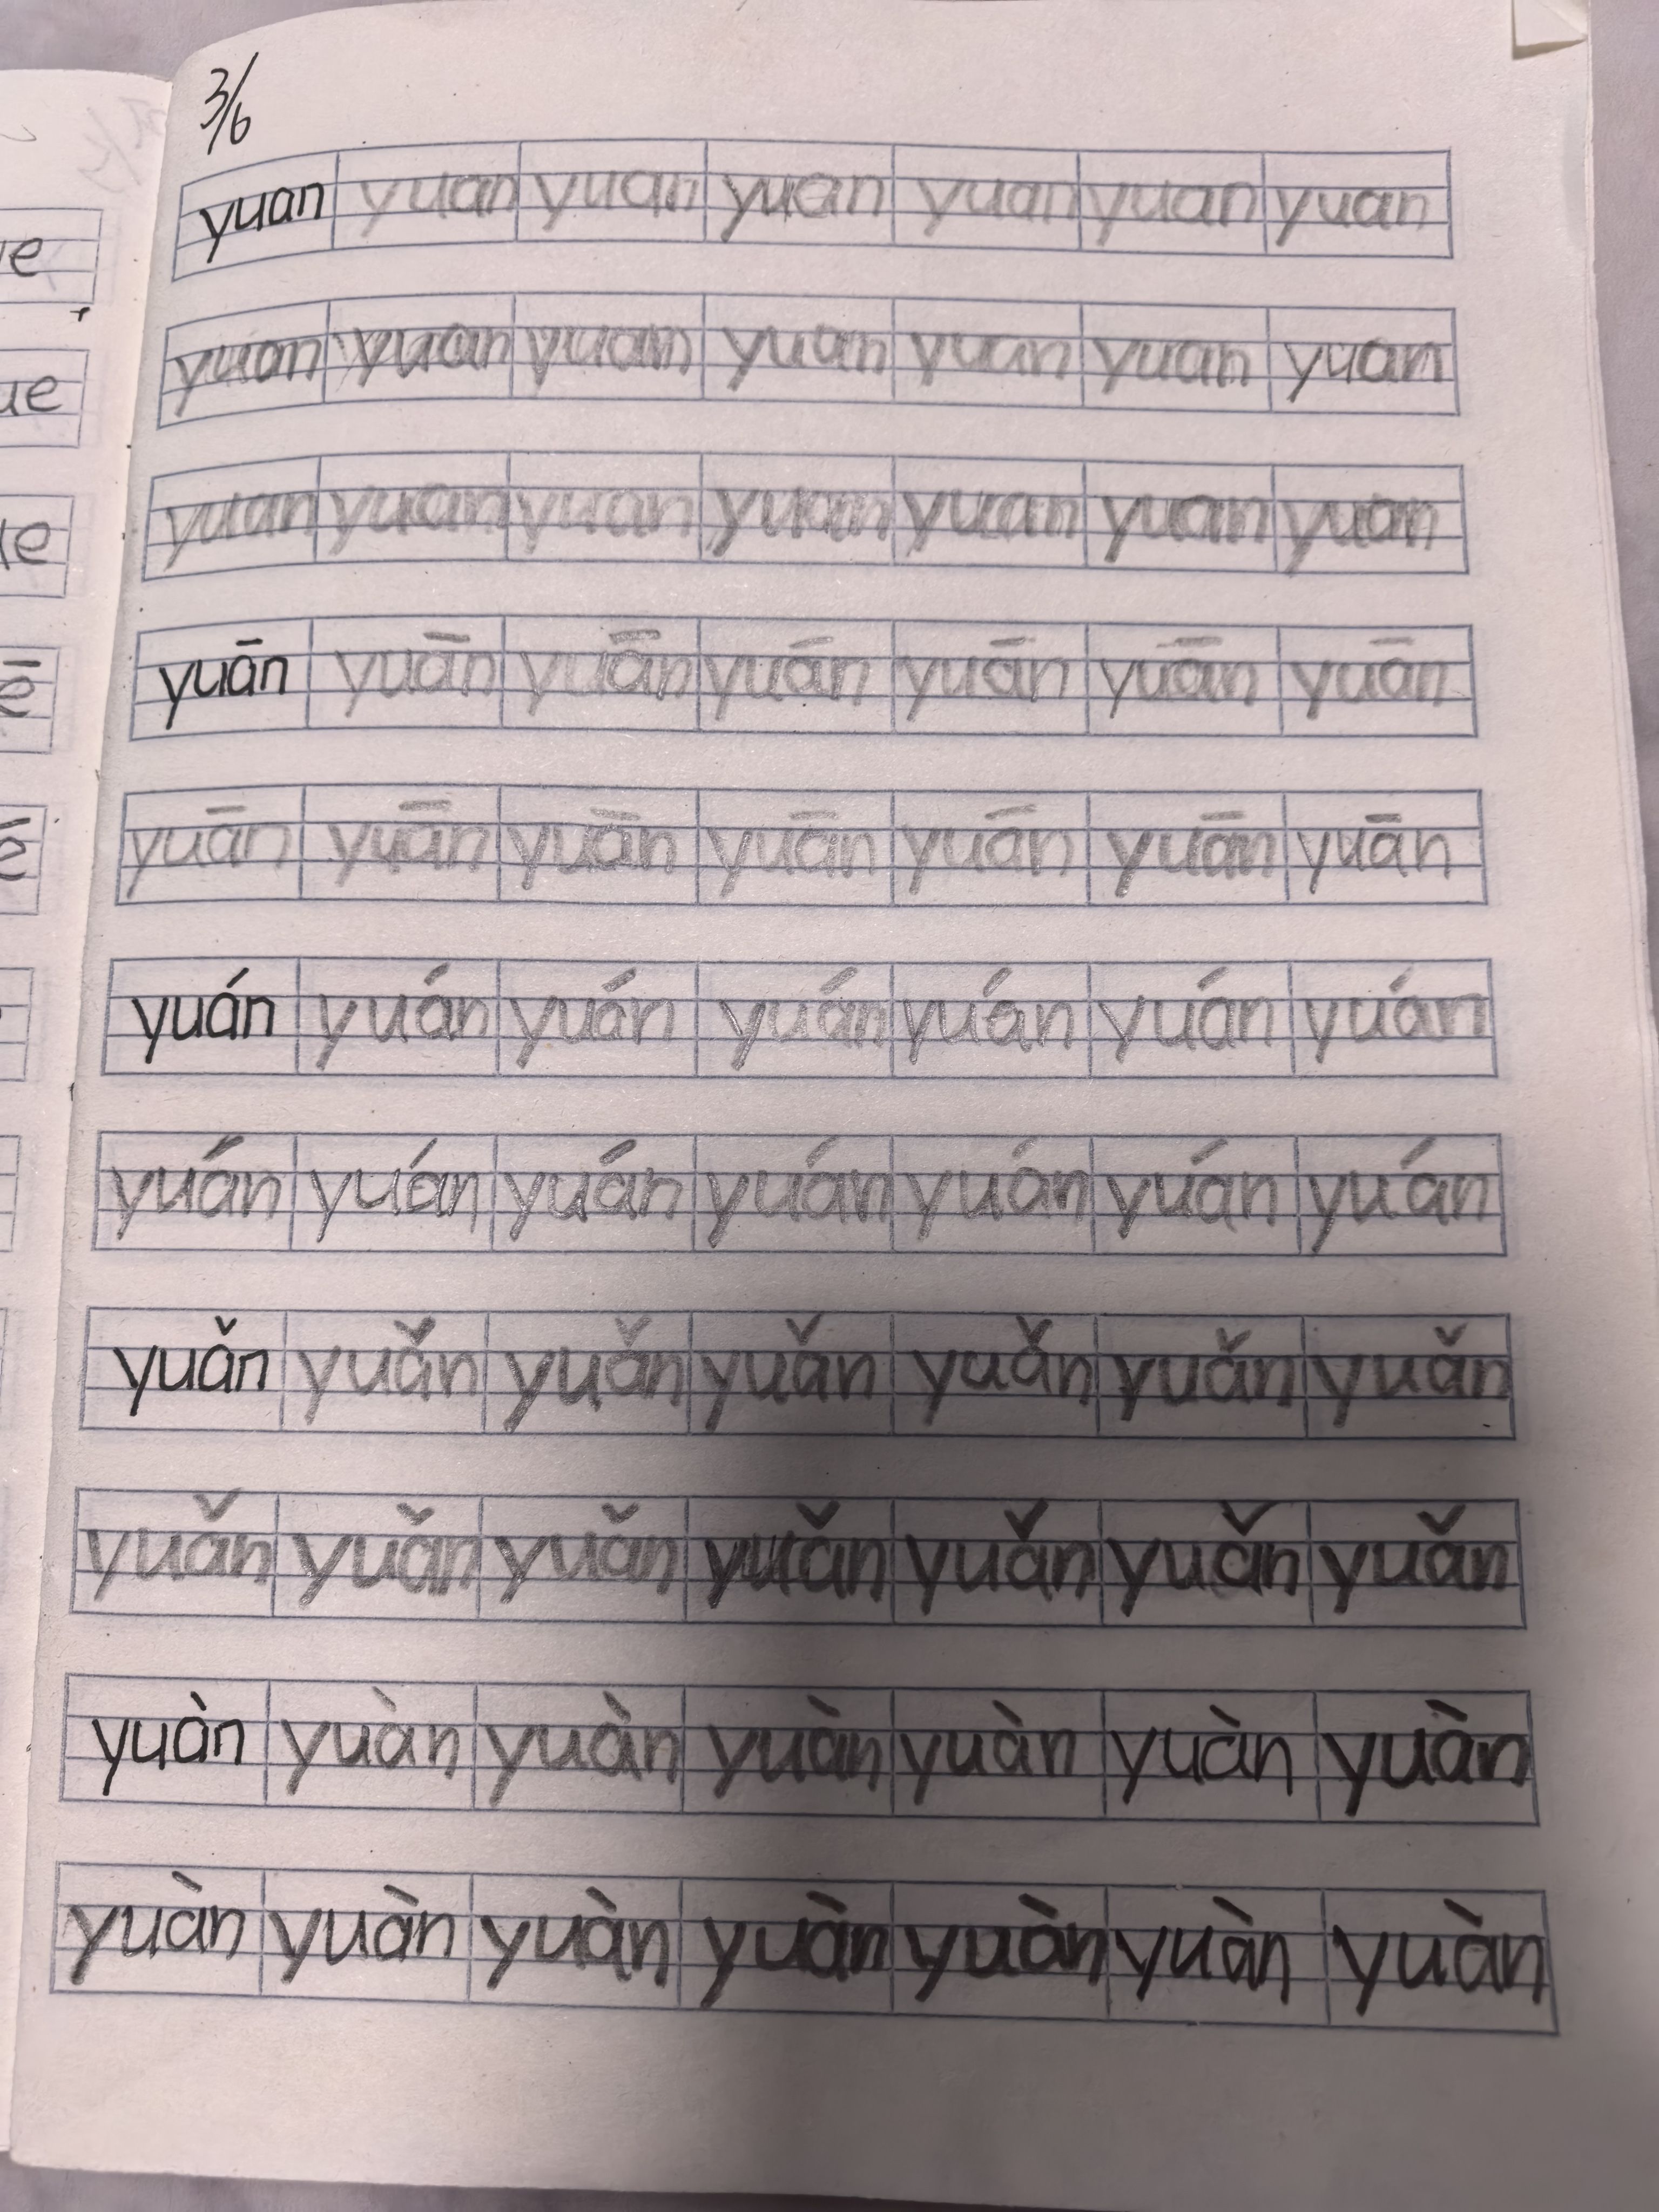 3/6
yuan yuan yuan yuan yuan yuan yuan
yuan yuan yuan yuan yuan yuan yuan
yuan yuan yuan yuan yuan yuan yuan
yuān yuān yuān yuān yuān yuān yuān
yuān yuān yuān yuān yuān yuān yuān
yuán yuán yuán yuán yuán yuán yuán
yuán yuán yuán yuán yuán yuán yuán
yuǎn yuǎn yuǎn yuǎn yuǎn yuǎn yuǎn
yuǎn yuǎn yuǎn yuǎn yuǎn yuǎn yuǎn
yuàn yuàn yuàn yuàn yuàn yuàn yuàn
yuàn yuàn yuàn yuàn yuàn yuàn yuàn